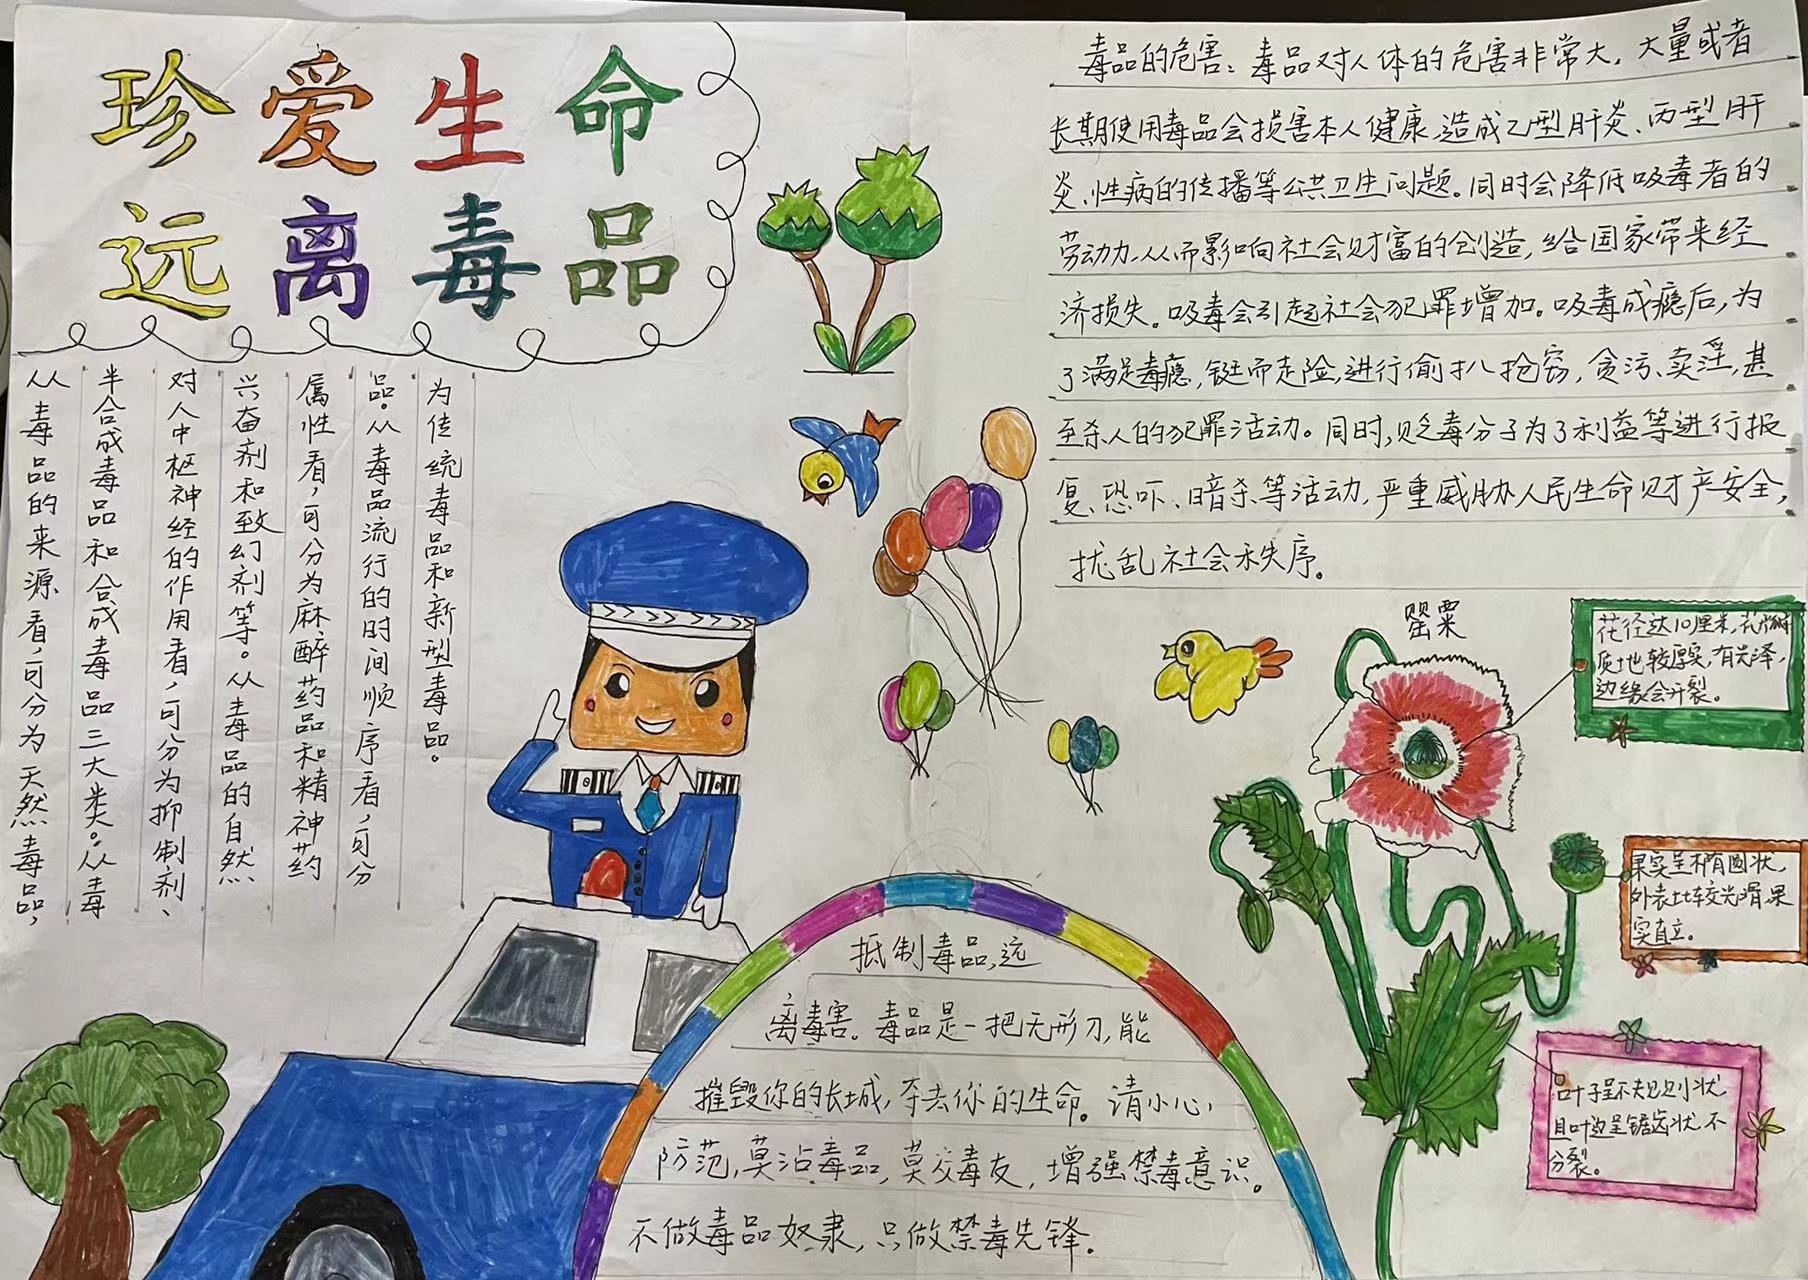 珍爱生命
远离毒品
从毒品的来源看,可分为天然毒品,
半合成毒品和合成毒品三大类。从毒
对人中枢神经的作用看,可分为抑制剂、
兴奋剂和致幻剂等。从毒品的自然
属性看,可分为麻醉药品和精神药
品。从毒品流行的时间顺序看,可分
为传统毒品和新型毒品。
毒品的危害:毒品对人体的危害非常大,大量或者
长期使用毒品会损害本人健康,造成乙型肝炎、丙型肝
炎、性病的传播等公共卫生问题。同时会降低吸毒者的
劳动力,从而影响社会财富的创造,给国家带来经
济损失。吸毒会引起社会犯罪增加。吸毒成瘾后,为
了满足毒瘾,铤而走险,进行偷扒抢窃,贪污、卖淫,甚
至杀人的犯罪活动。同时,贩毒分子为了利益等进行报
复、恐吓、暗杀等活动,严重威胁人民生命财产安全,
扰乱社会秩序。
罂粟
花径达10厘米,花瓣
质地较厚实,有光泽,
边缘会开裂。
果实呈椭圆状,
外表比较光滑,果
实直立。
叶子呈不规则状
且叶边呈锯齿状,不
分裂。
抵制毒品,远
离毒害。毒品是一把无形刀,能
摧毁你的长城,夺去你的生命。请小心,
防范,莫沾毒品,莫交毒友,增强禁毒意识。
不做毒品奴隶,只做禁毒先锋。